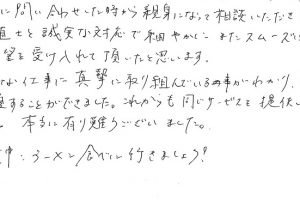 に問い合わせした時から親身になって相談いただき
直士と誠実な対応で細やかに またスムーズに
望を受け入れて頂いたと思います。
な仕事に真摯に取り組んでいる事がわかり、
することができました。これからも同じサービスを提供し
本当に有り難うございました。
ラーメン食べに行きましょう?